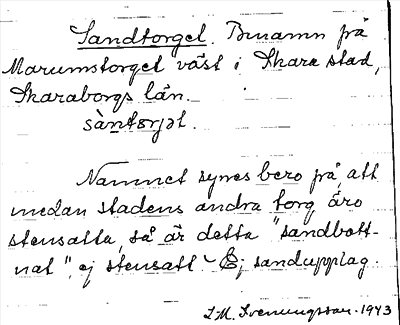 Sandtorget. Bnamn på
Marumstorget väst i Skara stad,
Skaraborgs län.
sàntɔrjət.
Namnet synes bero på, att
medan stadens andra torg äro
stensatta, så är detta "sandbott-
nat", ej stensatt. Ej sandupplag.
I.M. Svenungsson. 1943